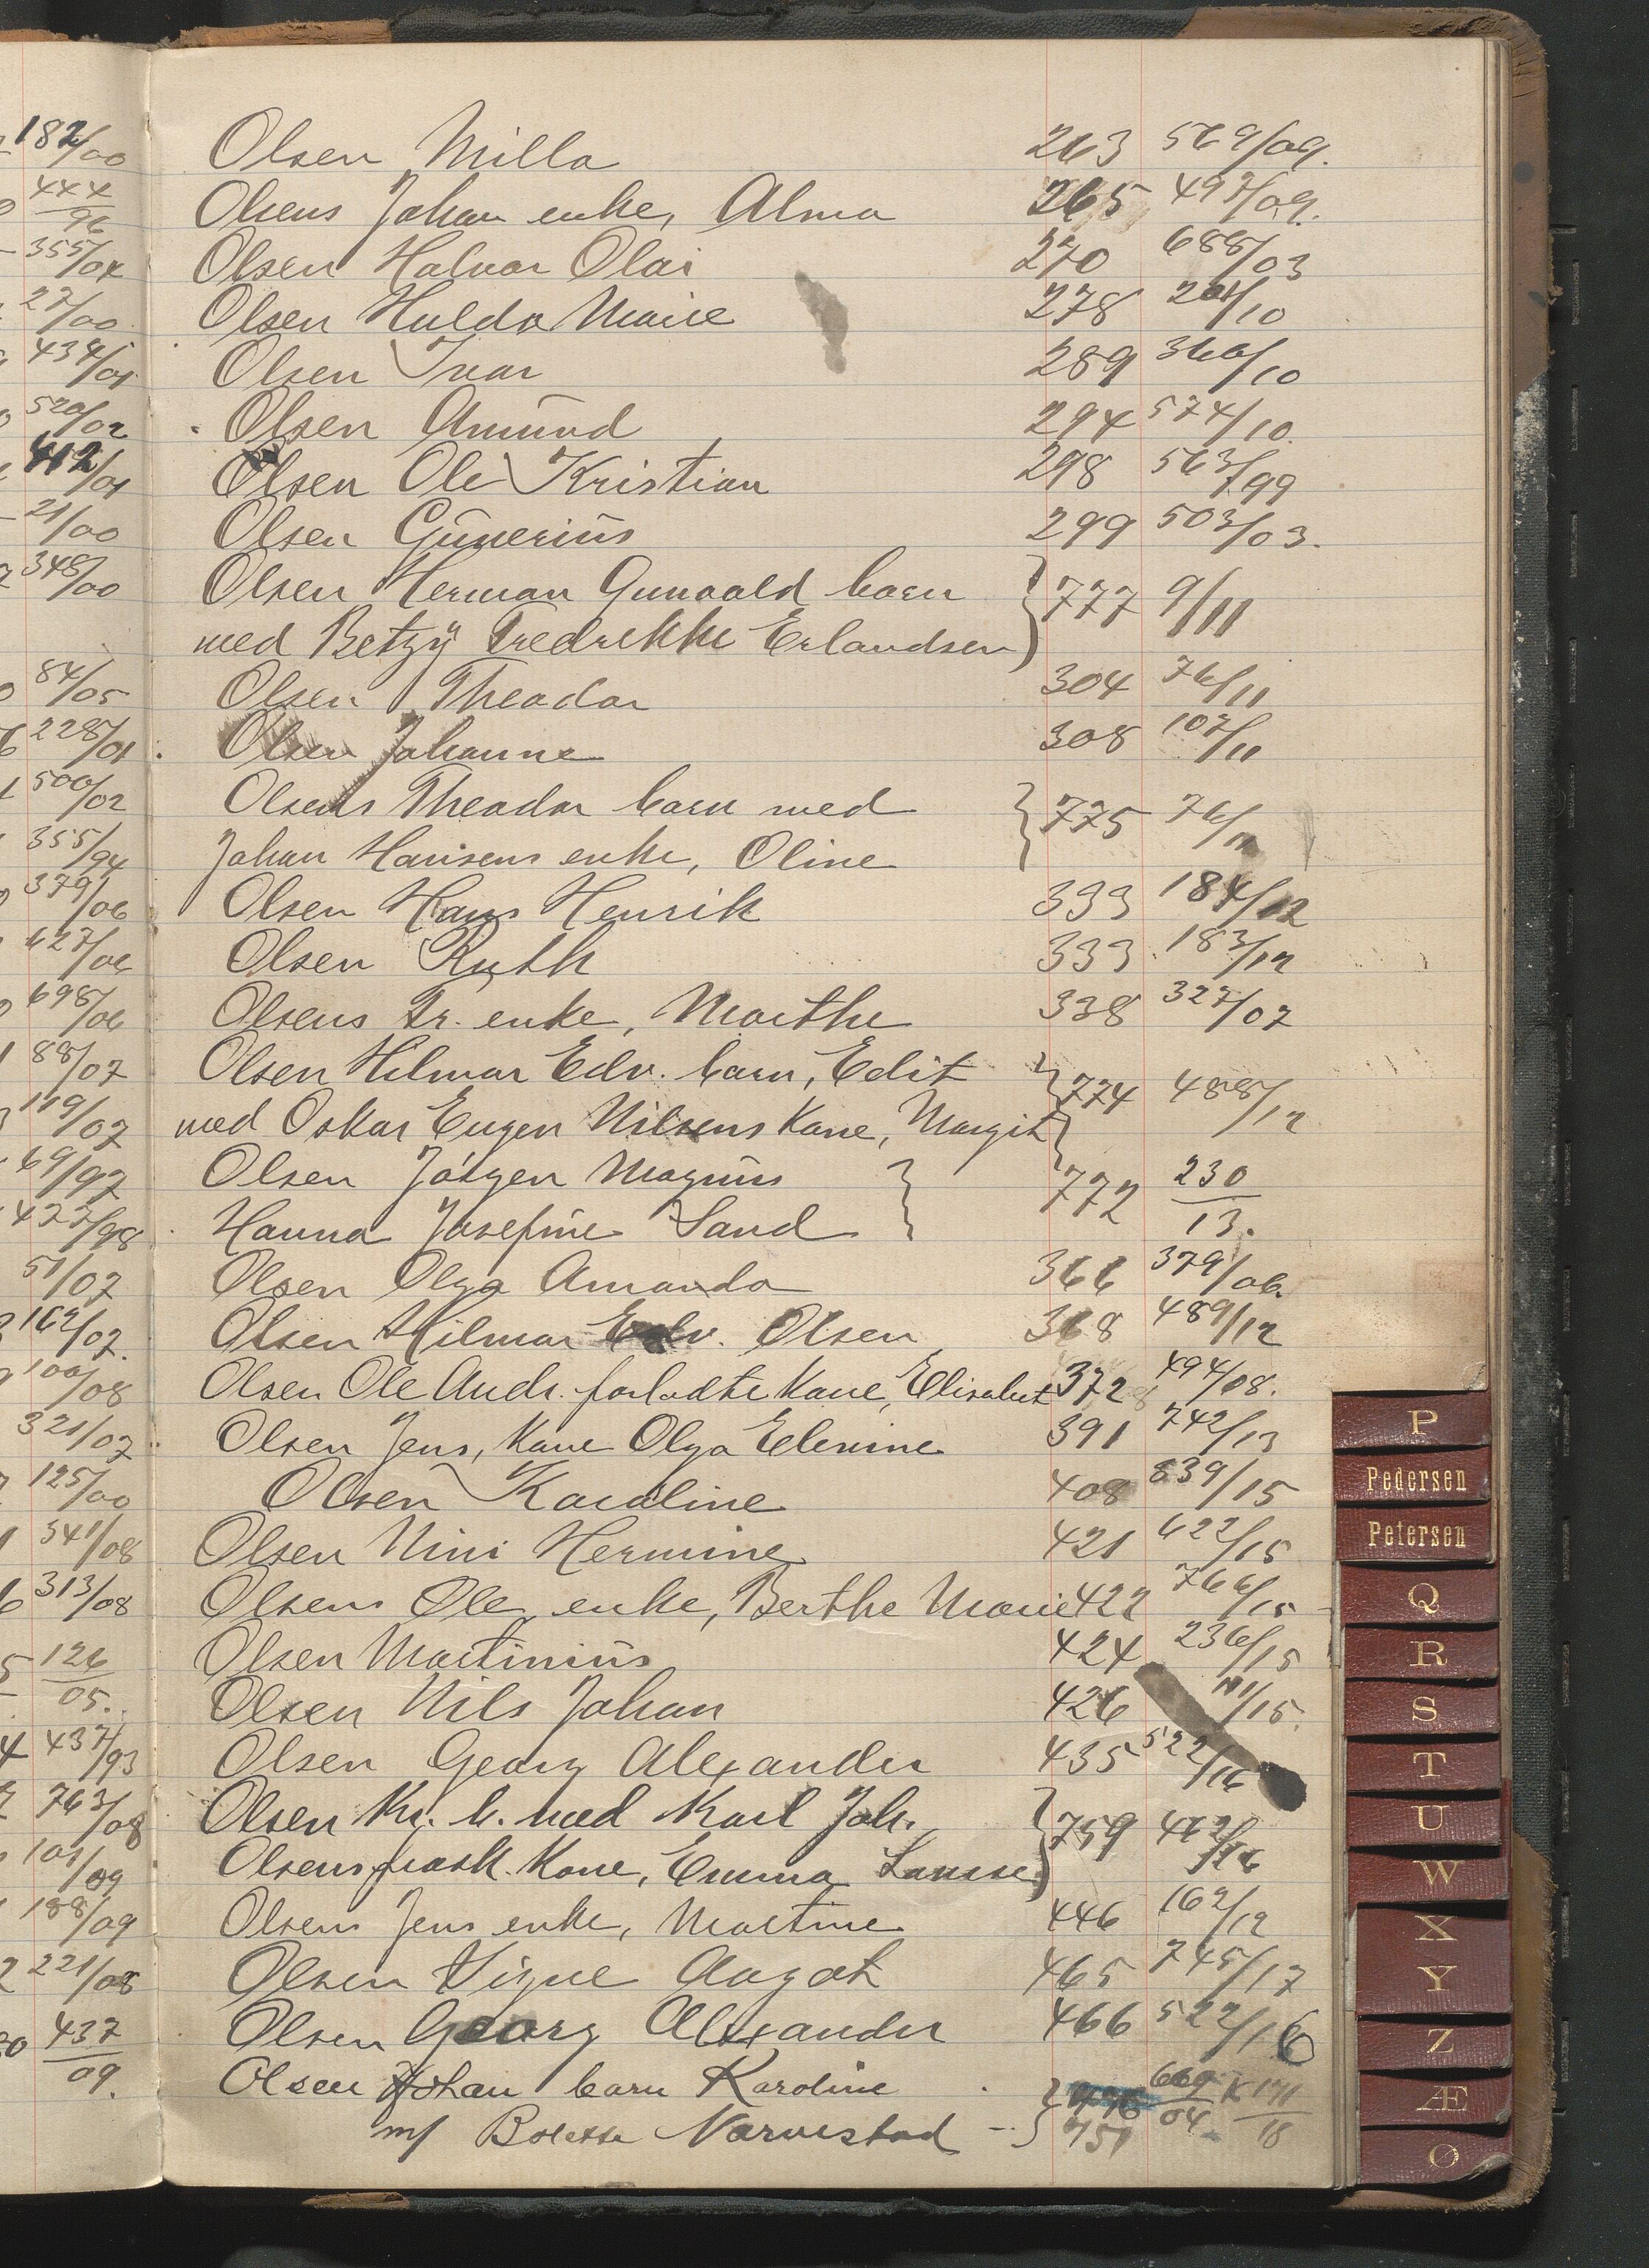 182/00
444
96
355/04
27/00
434/01
520/02
412/01
21/00
348/00
84/05
228/01
500/02
355/94
379/06
627/06
698/06
88/07
119/07
69/97
477/98
51/07
162/07.
100/08
321/07
125/00
341/08
313/08
126
05.
437/93
763/08
101/09
188/09
221/08
437
09.
Olsen Milla 263 569/09.
Olsens Johan enke, Alma 265 497/09.
Olsen Halvor Olai 270 688/03
Olsen Hulda Marie 278 201/10
Olsen Ivar 289 366/10
Olsen Amund 294 574/10.
Olsen Ole Kristian 298 563/99
Olsen Gunerius 299 503/03.
Olsen Herman Gunvald barn
med Betzy Fredrikke Erlandsen } 777 9/11
Olsen Theodor 304 76/11
Olsen Johanne 308 107/11
Olsens Theodor barn med
Johan Hansens enke, Oline } 775 76/11
Olsen Hans Henrik 333 184/12
Olsen Ruth 333 183/12
Olsens Fr. enke, Marthe 338 327/07
Olsen Hilmar Edv. barn, Edit
med Oskar Eugen Nilsens Kone, Margit } 774 488/12
Olsen Jörgen Magnus
Hanna Josefine Sand } 772 230
13.
Olsen Olga Amanda 366 379/06.
Olsen Hilmar Edv. Olsen 368 489/12
Olsen Ole Andr. forladte Kone, Elisabet 372 494/08.
Olsen Jens, Kone Olga Elevine 391 742/13
Olsen Karoline 408 839/15
Olsen Nini Hermine 421 622/15
Olsens Ole, enke, Berthe Marie 422 766/15
Olsen Martinius 424 236/15
Olsen Nils Johan 426 111/15.
Olsen Georg Alexander 435 522/16
Olsen Kr. b. med Karl Joh.
Olsens frask. Kone, Emma } 759 462/16
Olsens Jens enke, Martine 446 162/12
Olsen Signe Aagot 465 745/17
Olsen Georg Alexander 466 522/16
Olsen Johan barn Karoline
m/ Bolette Narvestad } 751 669/04 K 171/18
P
Pedersen
Petersen
Q
R
S
T
U
W
X
Y
Z
Æ
Ø